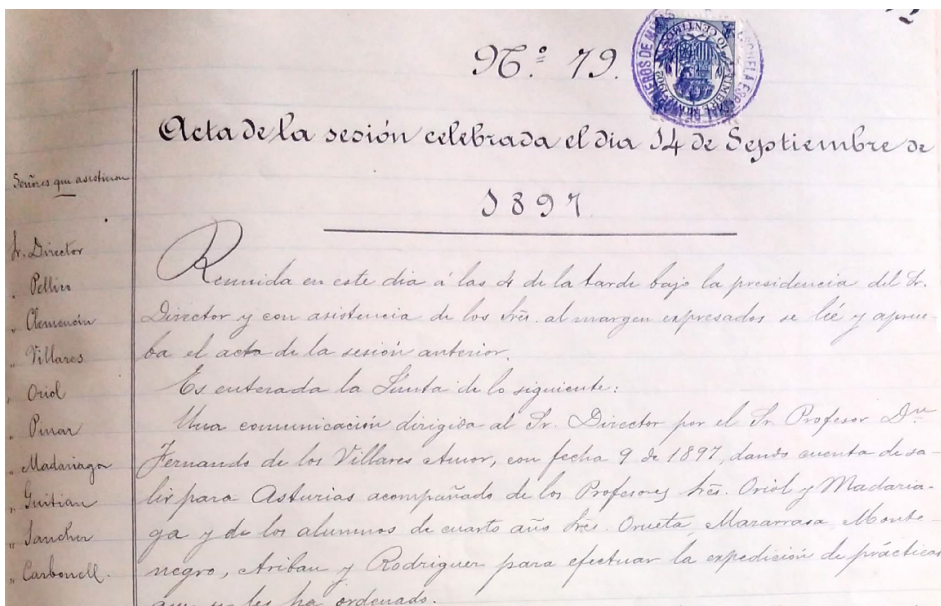 Nº 79.
Acta de la sesión celebrada el dia 14 de Septiembre de
1897
Señores que asistieron
Sr. Director
" Pellico
" Clemencín
" Villares
" Oriol
" Pinar
" Madariaga
" Guitian
" Sanchez
" Carbonell.
Reunida en este dia á las 4 de la tarde bajo la presidencia del Sr.
Director y con asistencia de los Sres. al margen expresados se lée y aprue-
ba el acta de la sesión anterior.
Es enterada la Junta de lo siguiente:
Una comunicación dirigida al Sr. Director por el Sr. Profesor Dn
Fernando de los Villares Amor, con fecha 9 de 1897, dando cuenta de sa-
lir para Asturias acompañado de los Profesores Sres. Oriol y Madaria-
ga y de los alumnos de cuarto año Sres. Orueta, Mazarrasa Monte-
negro, Aribau y Rodriguez para efectuar la expedición de prácticas
que se les ha ordenado.